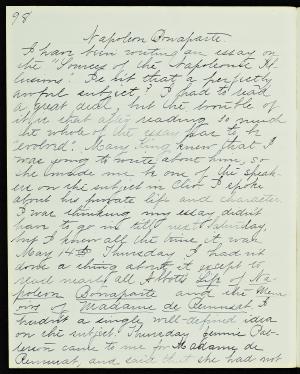 98
Napoleon Bonaparte.
I have been writing an essay on
the "Sources of the Napoleonic Il-
lusions". Is not that a perfectly
awful subject? I had to read
a great deal, but the trouble of
it is that after reading so much
the whole of the essay has to be
evolved. Mary King knew that I
was going to write about him, so
she made me be one of the speak-
ers on the subject in Clio I spoke
about his private life and character.
I was thinking my essay didn't
have to go in till next Saturday,
but I know all the time it was
May 14th Thursday I had not
done a thing about it except to
read nearly all Abbotts Life of Na-
poleon Bonaparte and the Mem-
oirs of Madame de Remusat. I
hadn't a single well-defined idea
on the subject. Thursday Jennie Pat-
terson came to me for Madame de
Remusat, and said that she had not